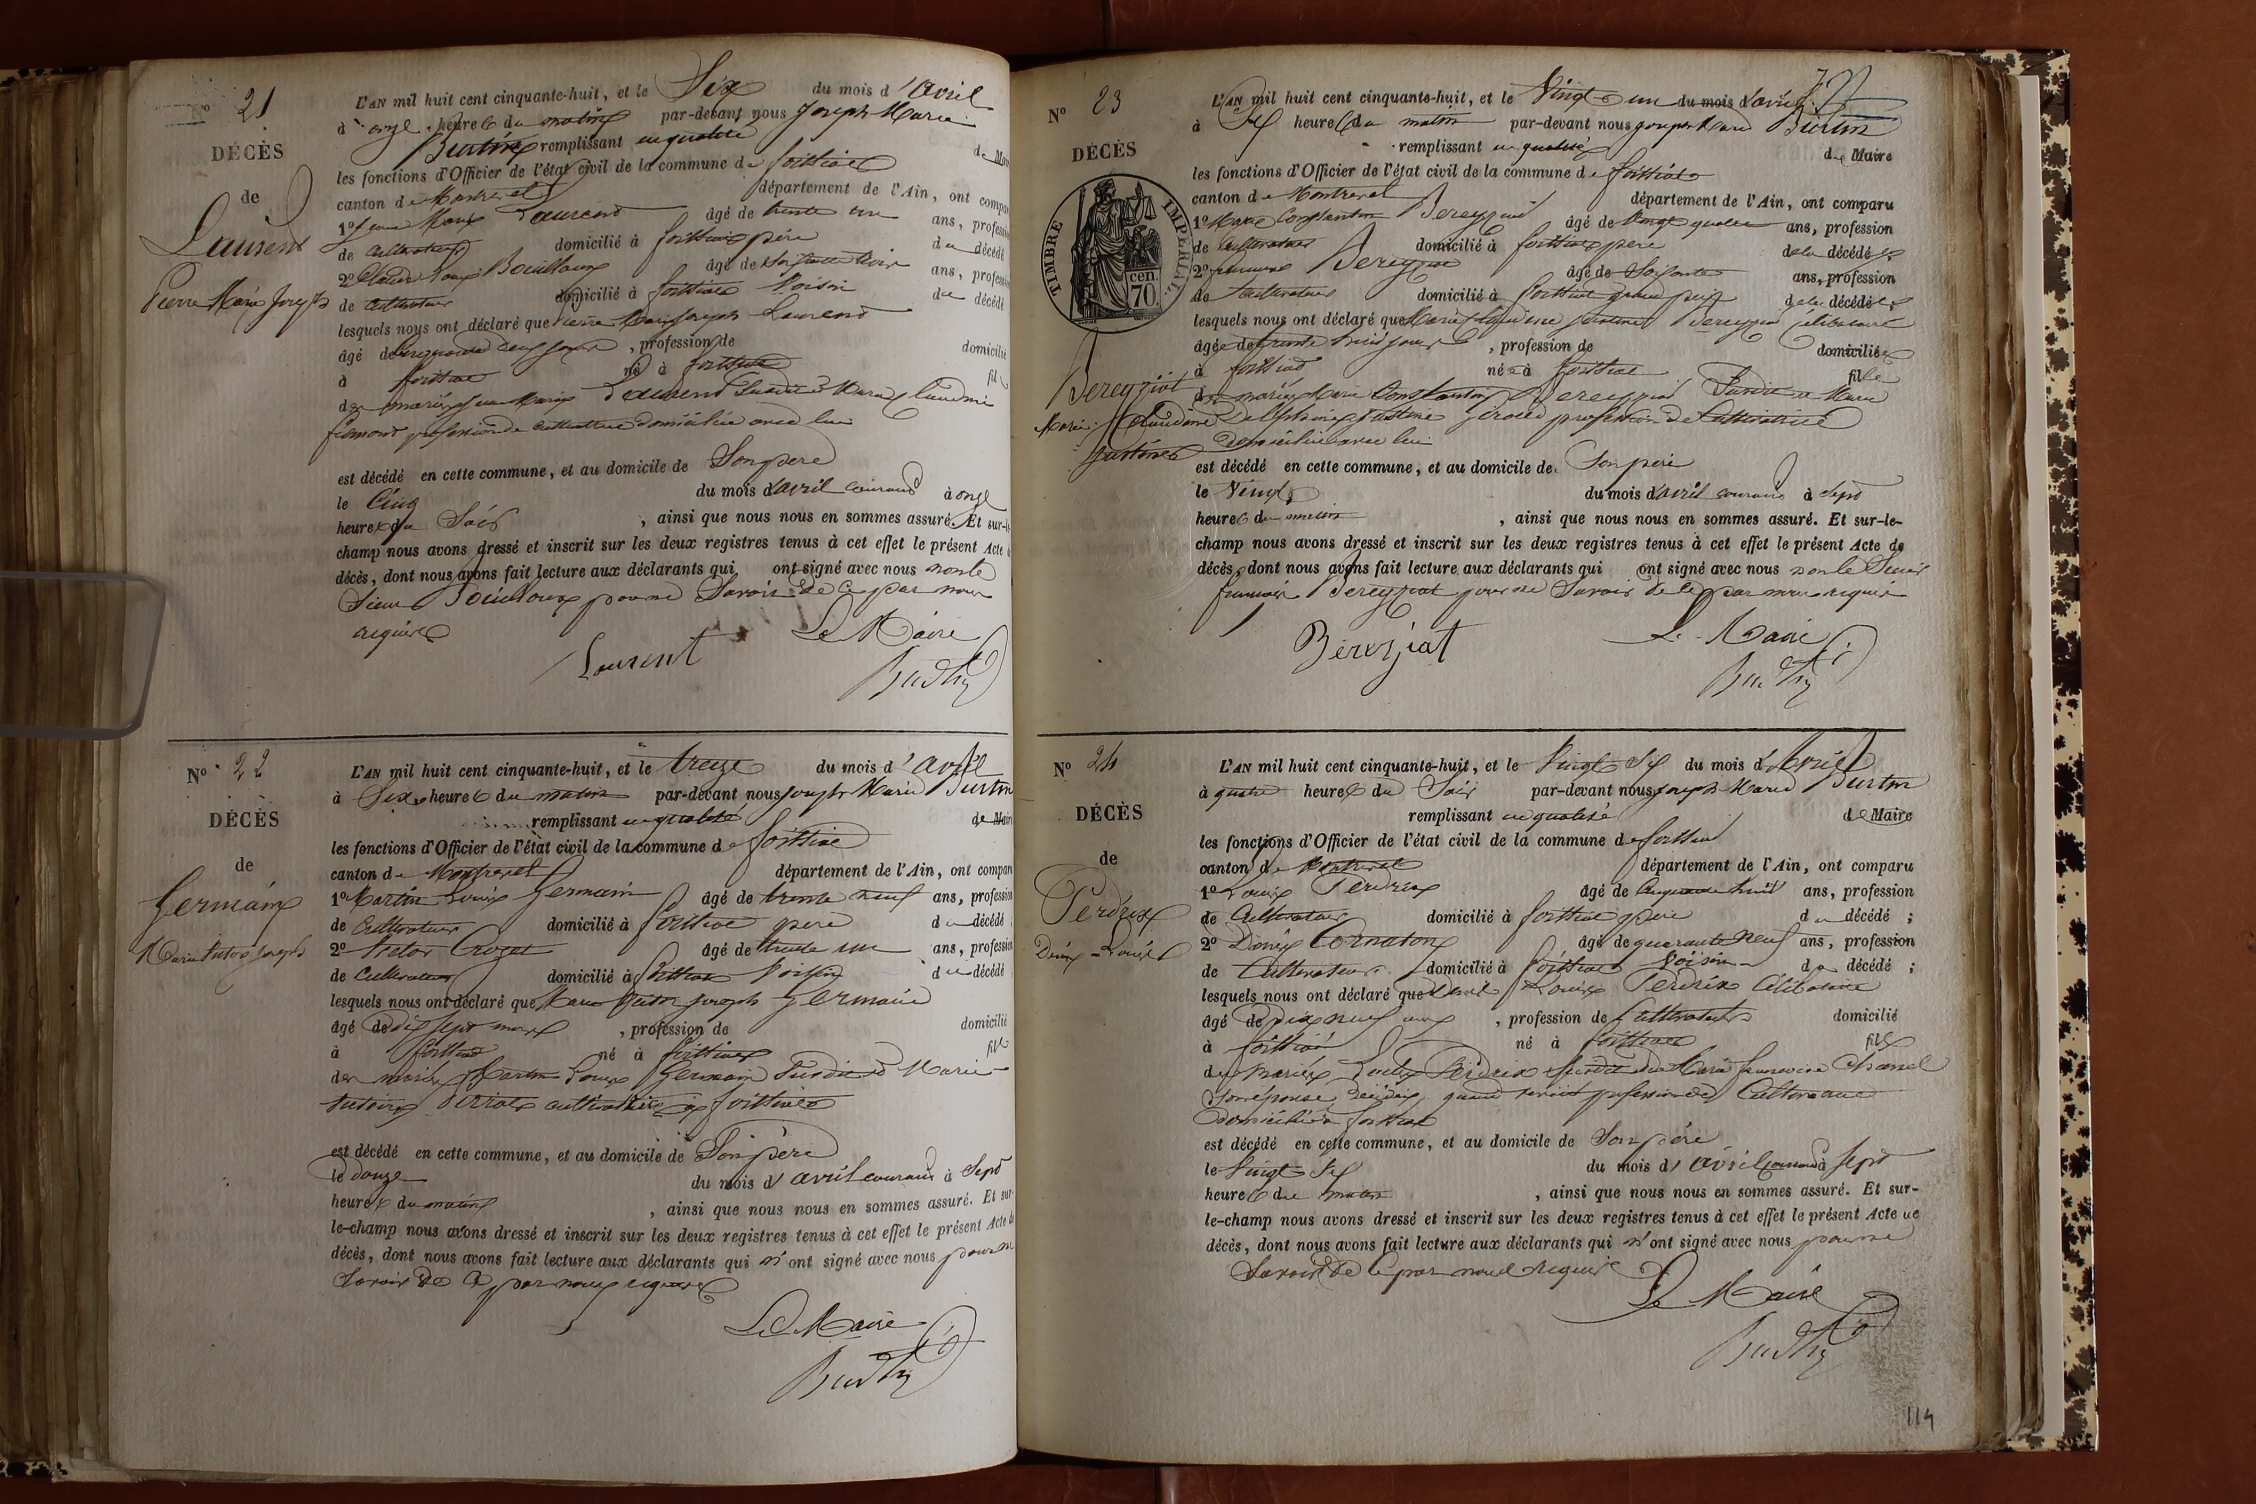 N° 21
DÉCÈS
de
Laurent
Pierre Marie Joseph
L'AN mil huit cent cinquante-huit, et le Six du mois d'avril
à onze heures du matin par-devant nous Joseph Marie
Burtin remplissant en qualité de Maire
les fonctions d'Officier de l'état civil de la commune de foissiat
canton de Montrevel département de l'Ain, ont comparu
1° Marie Laurent âgé de trente un ans, profession
de Cultivateur domicilié à foissiat père du décédé
2° Claude Bouilloux âgé de soixante trois ans, profession
de Cultivateur domicilié à foissiat Voisin du décédé
lesquels nous ont déclaré que Pierre Marie Joseph Laurent
âgé de jours, profession de domicilié
à foissiat né à foissiat fils
des mariés Marie Laurent Susdit et Marie Claudine
profession de cultivatrice domiciliée avec lui
est décédé en cette commune, et au domicile de Son père
le Cinq du mois d'avril courant à onze
heures du Soir, ainsi que nous nous en sommes assuré. Et sur-le-
champ nous avons dressé et inscrit sur les deux registres tenus à cet effet le présent Acte de
décès, dont nous avons fait lecture aux déclarants qui ont signé avec nous non le
Sieur Bouilloux pour ne Savoir de ce par nous
requis
Laurent Le Maire
Burtin
N° 22
DÉCÈS
de
Germain
Marie Victor Joseph
L'AN mil huit cent cinquante-huit, et le treize du mois d'avril
à Six heures du matin par-devant nous Joseph Marie Burtin
remplissant en qualité de Maire
les fonctions d'Officier de l'état civil de la commune de foissiat
canton de Montrevel département de l'Ain, ont comparu
1° Martin Louis Germain âgé de trente neuf ans, profession
de Cultivateur domicilié à foissiat père du décédé
2° Victor Crozet âgé de trente un ans, profession
de Cultivateur domicilié à foissiat Voisin du décédé
lesquels nous ont déclaré que Marie Victor Joseph Germain
âgé de dix sept mois, profession de domicilié
à foissiat né à foissiat fils
des mariés Martin Louis Germain Susdit et Marie
cultivatrice à foissiat
est décédé en cette commune, et au domicile de Son père
le douze du mois d'avril courant à Sept
heures du matin, ainsi que nous nous en sommes assuré. Et sur-
le-champ nous avons dressé et inscrit sur les deux registres tenus à cet effet le présent Acte de
décès, dont nous avons fait lecture aux déclarants qui n'ont signé avec nous pour ne
Savoir de ce par nous requis
Le Maire
Burtin
N° 23
DÉCÈS
TIMBRE IMPÉRIAL
70 cen.
Bereyziat
Marie Claudine
Justine
L'AN mil huit cent cinquante-huit, et le Vingt un du mois d'avril
à Six heures du matin par-devant nous Joseph Marie Burtin
remplissant en qualité de Maire
les fonctions d'Officier de l'état civil de la commune de foissiat
canton de Montrevel département de l'Ain, ont comparu
1° Marie Constantin Bereyziat âgé de Vingt quatre ans, profession
de Cultivateur domicilié à foissiat père de la décédée
2° françois Bereyziat âgé de Soixante ans, profession
de Cultivateur domicilié à foissiat grand père de la décédée
lesquels nous ont déclaré que Marie Claudine Justine Bereyziat Célibataire
âgée de trente trois jours, profession de domiciliée
à foissiat née à foissiat fille
des mariés Marie Constantin Bereyziat Susdit et Marie
Delphine Justine profession de Cultivatrice
domiciliée avec lui
est décédé en cette commune, et au domicile de Son père
le Vingt du mois d'avril courant à Sept
heures du matin, ainsi que nous nous en sommes assuré. Et sur-le-
champ nous avons dressé et inscrit sur les deux registres tenus à cet effet le présent Acte de
décès, dont nous avons fait lecture aux déclarants qui ont signé avec nous non le Sieur
françois Bereyziat pour ne Savoir de ce par nous requis
Bereyziat Le Maire
Burtin
N° 24
DÉCÈS
de
Perdrix
Denis Louis
L'AN mil huit cent cinquante-huit, et le Vingt Six du mois d'Avril
à quatre heures du Soir par-devant nous Joseph Marie Burtin
remplissant en qualité de Maire
les fonctions d'Officier de l'état civil de la commune de foissiat
canton de Montrevel département de l'Ain, ont comparu
1° Louis Perdrix âgé de cinquante huit ans, profession
de Cultivateur domicilié à foissiat père du décédé ;
2° Denis Cornaton âgé de quarante neuf ans, profession
de Cultivateur domicilié à foissiat Voisin du décédé ;
lesquels nous ont déclaré que Denis Louis Perdrix Célibataire
âgé de dix neuf ans, profession de Cultivateur domicilié
à foissiat né à foissiat fils
des mariés Louis Perdrix Susdit et de Marie françoise Chanel
Son épouse quand vivait profession de Cultivatrice
domiciliée à foissiat
est décédé en cette commune, et au domicile de Son père
le Vingt Six du mois d'avril courant à Sept
heures du matin, ainsi que nous nous en sommes assuré. Et sur-
le-champ nous avons dressé et inscrit sur les deux registres tenus à cet effet le présent Acte de
décès, dont nous avons fait lecture aux déclarants qui n'ont signé avec nous pour ne
Savoir de ce par nous requis
Le Maire
Burtin
114